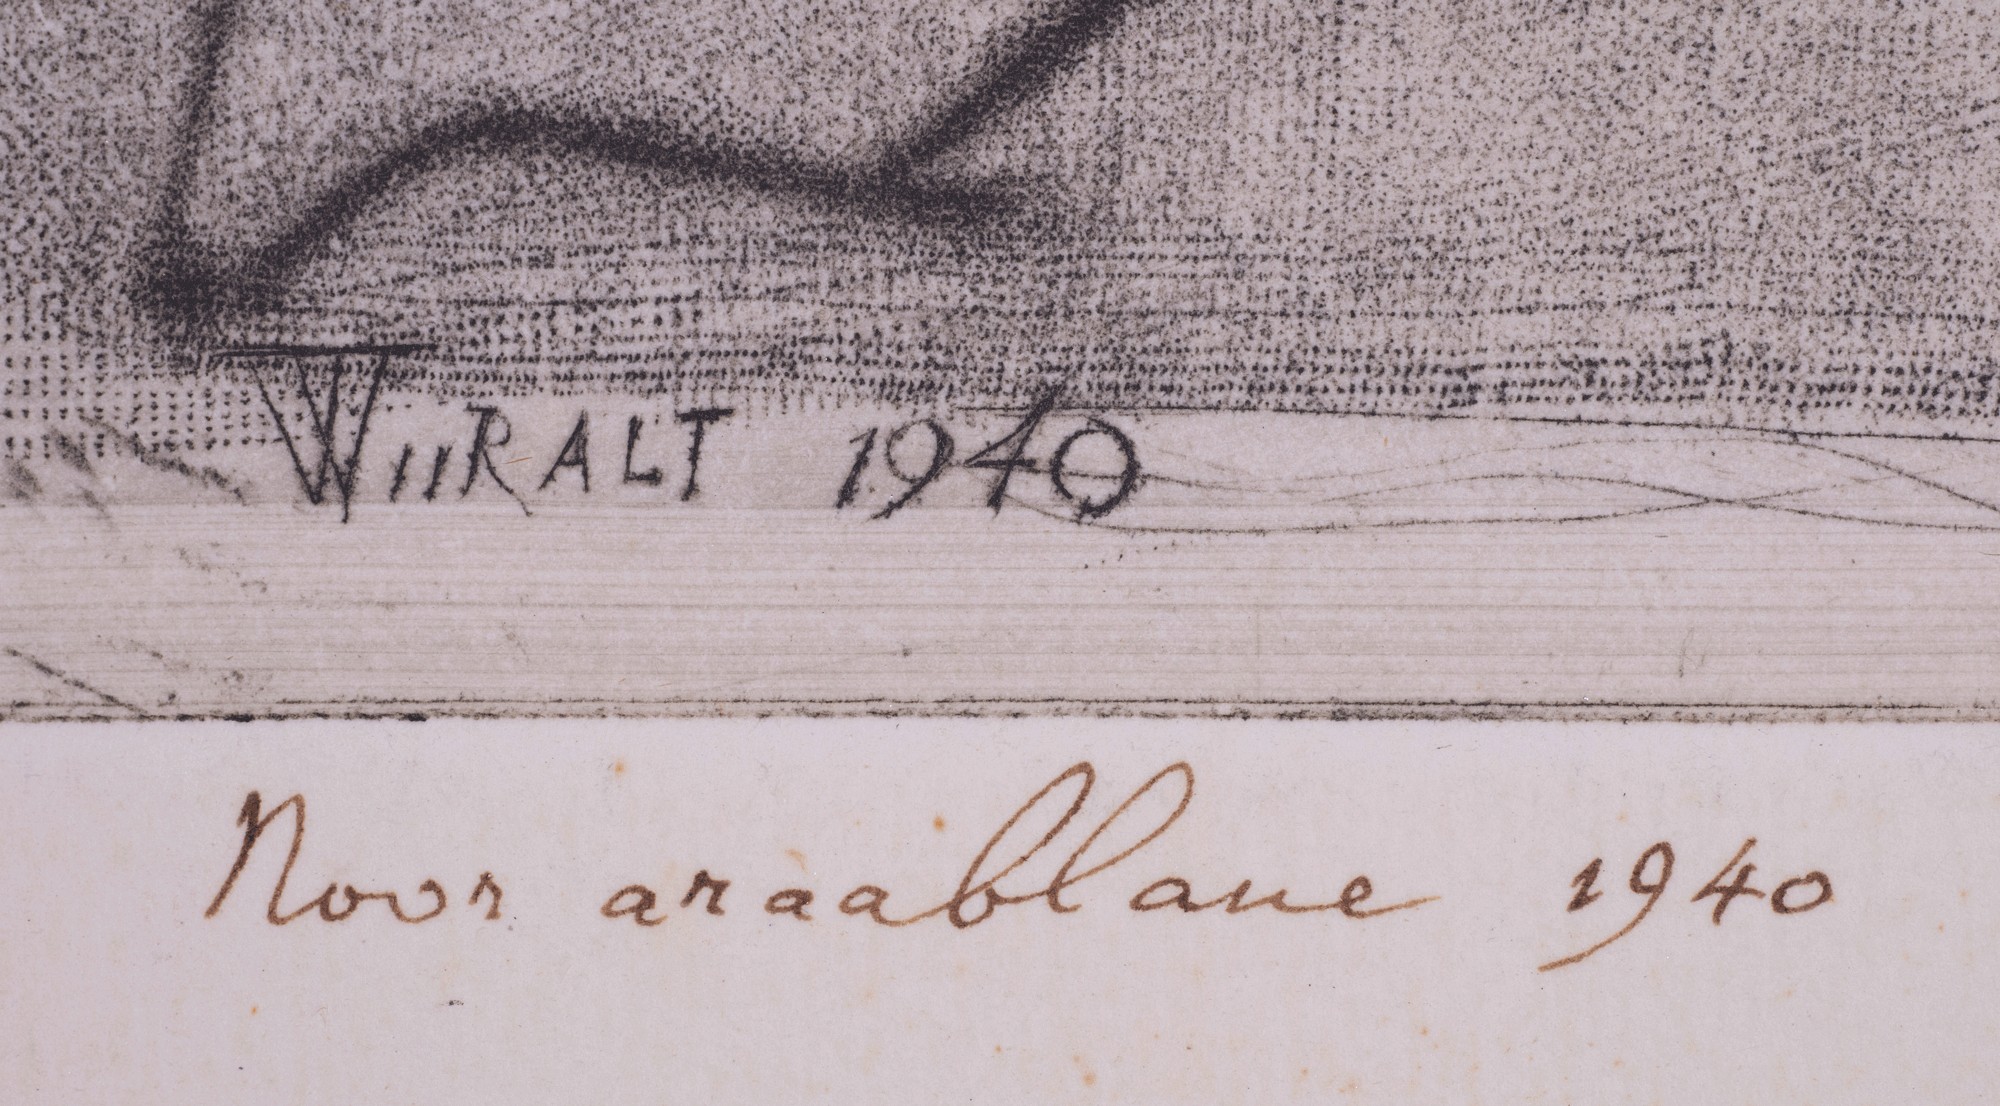 WIIRALT 1940
Noor araablane 1940